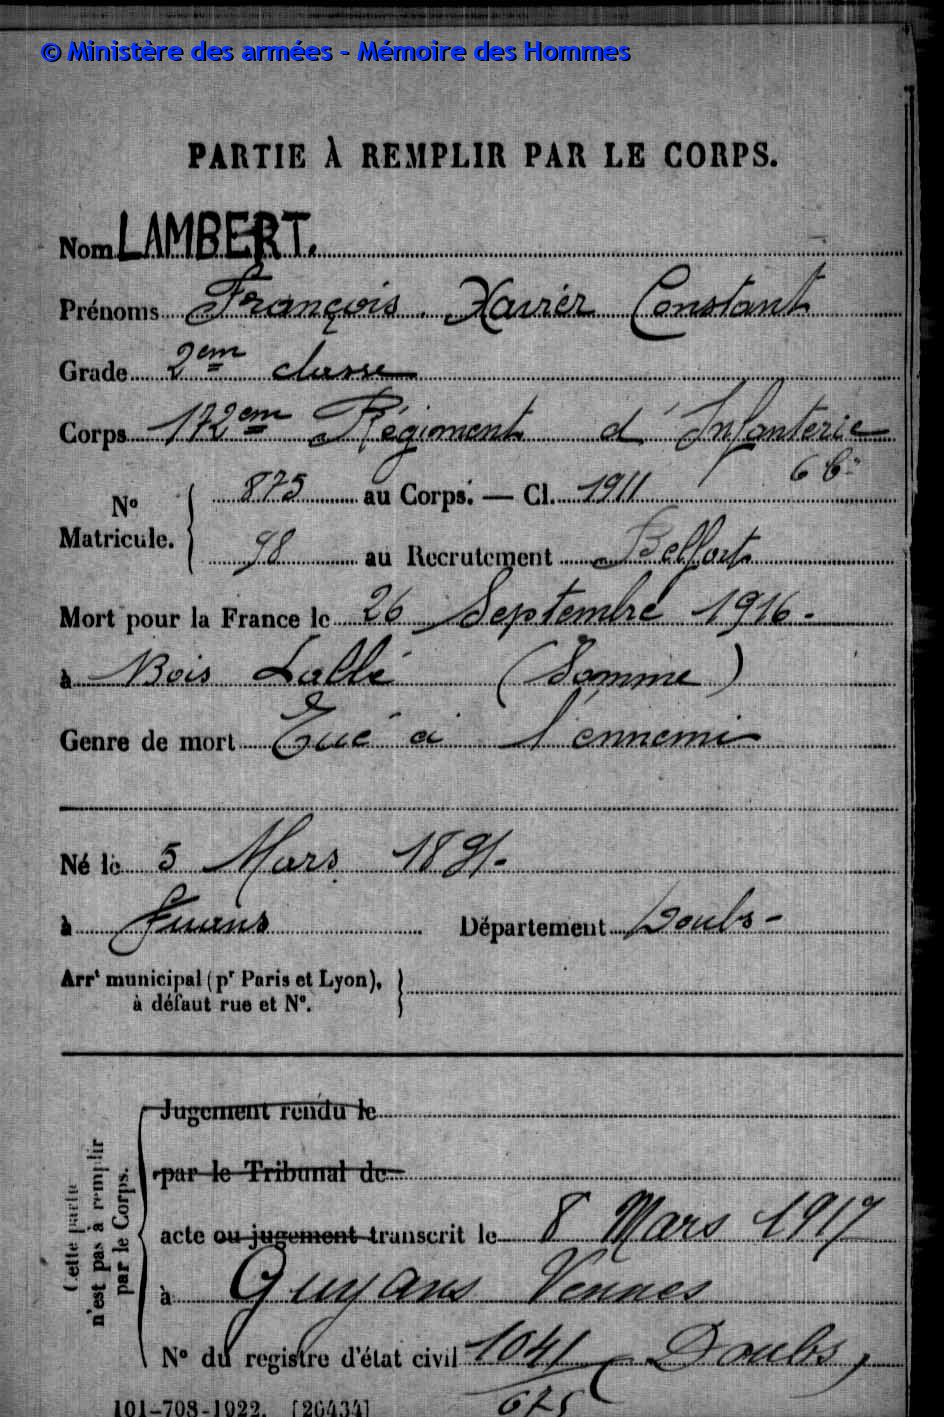 © Ministère des armées - Mémoire des Hommes
PARTIE À REMPLIR PAR LE CORPS.
Nom LAMBERT.
Prénoms François Xavier Constant
Grade 2em classe
Corps 172em Régiment d'Infanterie
6 Cie
No Matricule. 875 au Corps. — Cl. 1911
98 au Recrutement Belfort
Mort pour la France le 26 Septembre 1916 -
à Bois Labbé (Somme)
Genre de mort Tué à l'ennemi
Né le 5 Mars 1891 -
à Fuans Département Doubs -
Arrt municipal (pr Paris et Lyon),
à défaut rue et No.
Cette partie
n'est pas à remplir
par le Corps.
Jugement rendu le
par le Tribunal de
acte ou jugement transcrit le 8 Mars 1917
à Guyans Vennes
No du registre d'état civil 1041 (Doubs)
675
101-708-1922. [26434]